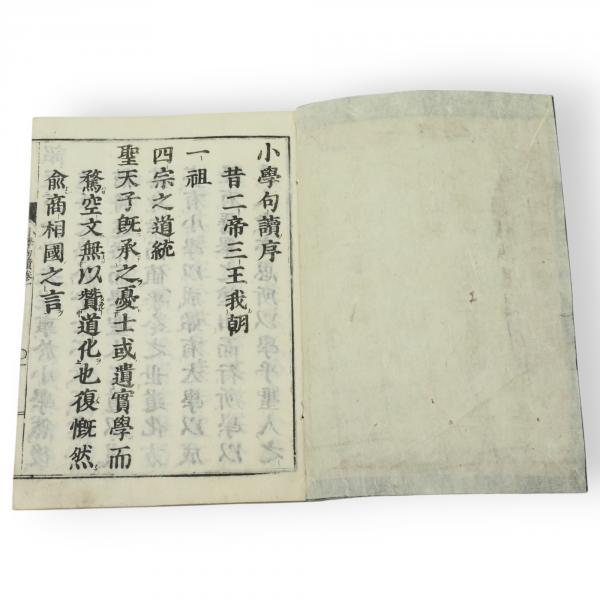 小學句讀序
昔二帝三王我朝
一祖
四宗之道統
聖天子旣承之憂士或遺實學而
騖空文無以贊道化也復慨然
兪商相國之言
小學句讀卷一